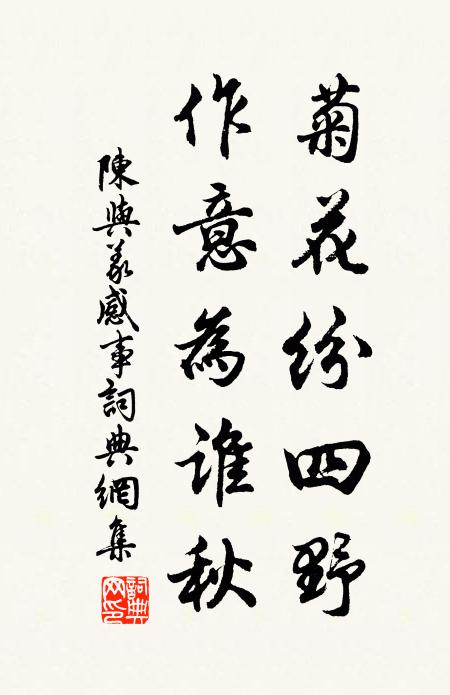 菊花紛四野
作意為誰秋
陳與義感事詞典網集
詞典網印